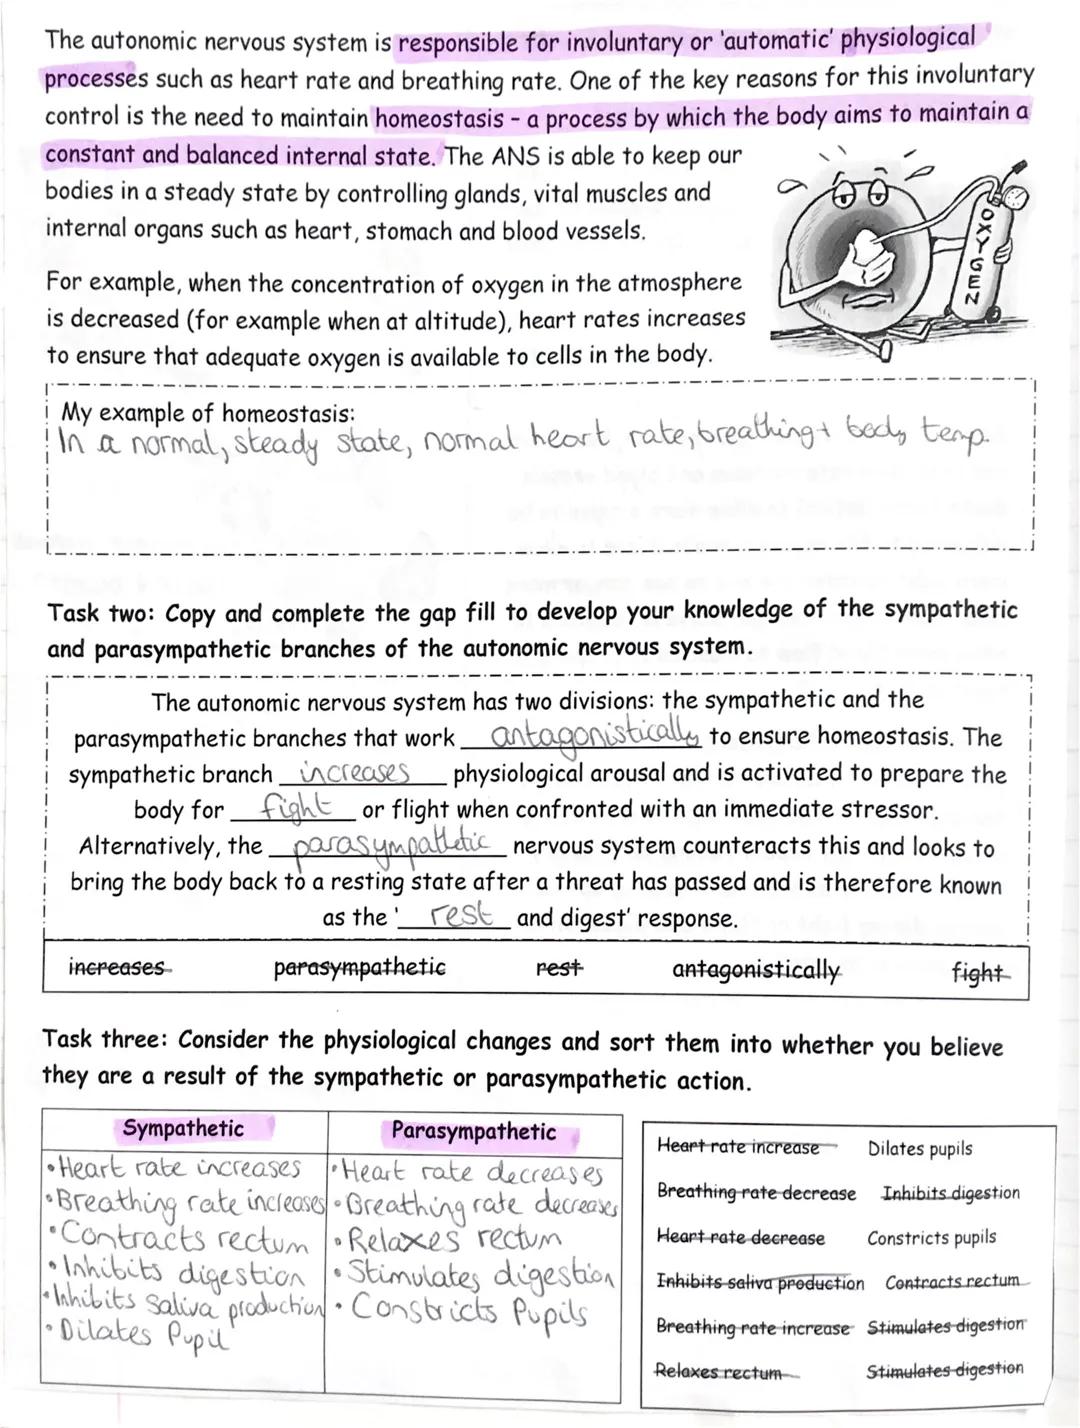 The autonomic nervous system is responsible for involuntary or 'automatic' physiological
processes such as heart rate and breathing rate. One of the key reasons for this involuntary
control is the need to maintain homeostasis - a process by which the body aims to maintain a
constant and balanced internal state. The ANS is able to keep our
bodies in a steady state by controlling glands, vital muscles and
internal organs such as heart, stomach and blood vessels.
OXYGEN
For example, when the concentration of oxygen in the atmosphere
is decreased (for example when at altitude), heart rates increases
to ensure that adequate oxygen is available to cells in the body.
My example of homeostasis:
In a normal, steady state, normal heart rate, breathing + body temp.
Task two: Copy and complete the gap fill to develop your knowledge of the sympathetic
and parasympathetic branches of the autonomic nervous system.
The autonomic nervous system has two divisions: the sympathetic and the
parasympathetic branches that work antagonistically to ensure homeostasis. The
sympathetic branch increases physiological arousal and is activated to prepare the
body for fight or flight when confronted with an immediate stressor.
Alternatively, the parasympathetic nervous system counteracts this and looks to
bring the body back to a resting state after a threat has passed and is therefore known
as the 'rest and digest' response.
increases parasympathetic rest antagonistically fight
Task three: Consider the physiological changes and sort them into whether you believe
they are a result of the sympathetic or parasympathetic action.
Sympathetic
• Heart rate increases
• Breathing rate increases
• Contracts rectum
• Inhibits digestion
• Inhibits saliva production
• Dilates Pupil
Parasympathetic
• Heart rate decreases
• Breathing rate decreases
• Relaxes rectum
• Stimulates digestion
• Constricts Pupils
Heart rate increase Dilates pupils
Breathing rate decrease Inhibits digestion
Heart rate decrease Constricts pupils
Inhibits saliva production Contracts rectum
Breathing rate increase Stimulates digestion
Relaxes rectum Stimulates digestion